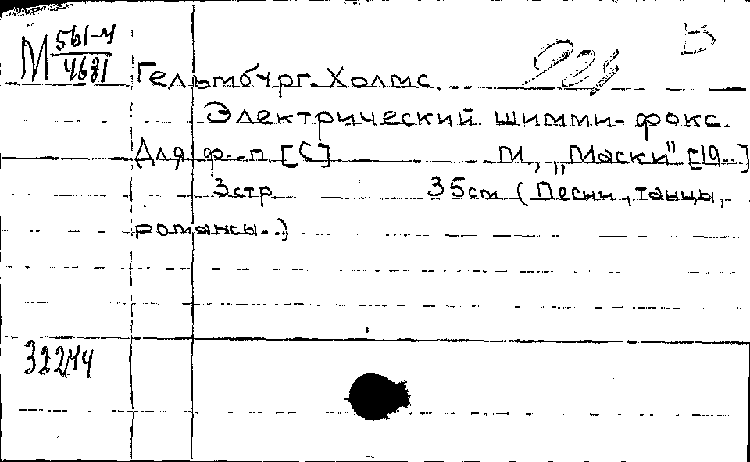 М 561-4
4631
Гельмбург-Холмс.
Электрический шимми-фокс.
Для ф.-п. [С] М., „Маски" [19..]
3 стр. 35 см (Песни, танцы,
романсы..)
32214